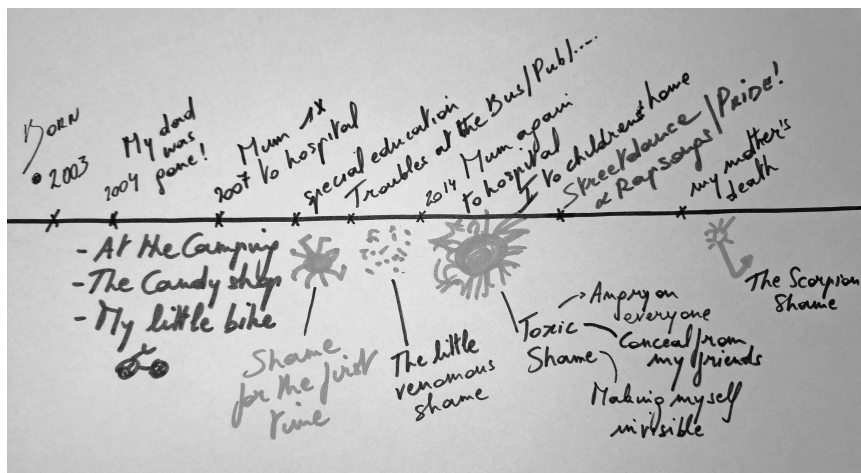 BORN
2003
2004 My dad
was
gone!
Mum 1x
2007 to hospital
special education
Troubles at the Bus/Publ....
2014 Mum again
to hospital
I to children's home
Streetdance
& Rapsongs/PRIDE!
my mother's
death
- At the Camping
- The Candy shop
- My little bike
Shame
for the first
time
The little
venomous
shame
Toxic
Shame
Angry on
everyone
Conceal from
my friends
Making myself
invisible
The Scorpion
Shame